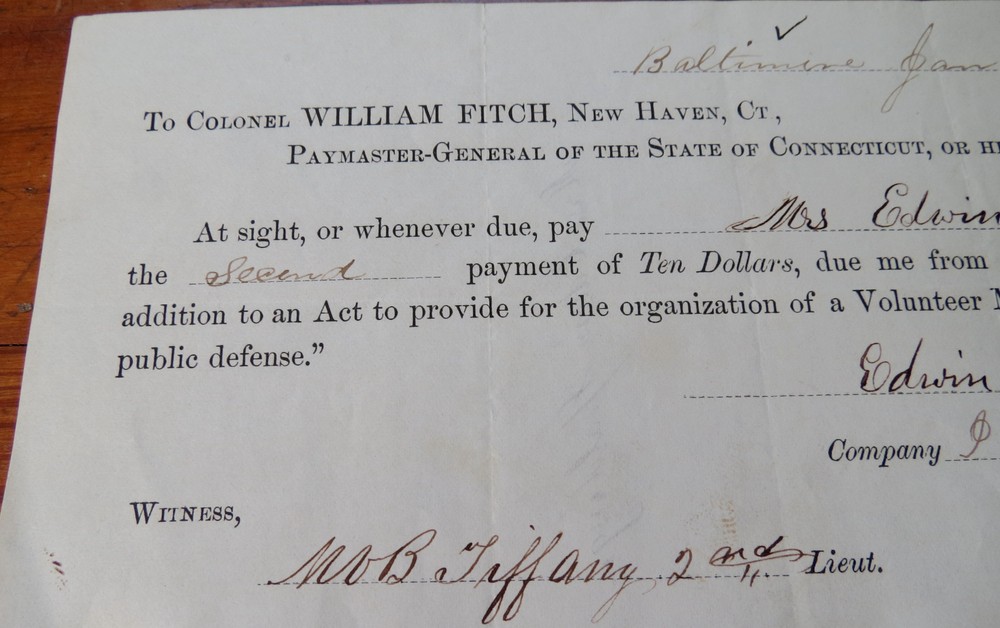 Baltimore Jan
To Colonel WILLIAM FITCH, New Haven, Ct,
Paymaster-General of the State of Connecticut, or
At sight, or whenever due, pay Mrs Edwin
the Second payment of Ten Dollars, due me from
addition to an Act to provide for the organization of a Volunteer
public defense."
Edwin
Company I
Witness,
M V B Tiffany 2nd Lieut.